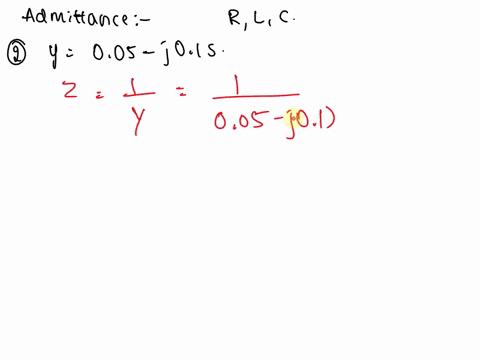 Admittance:- R, L, C.
② y = 0.05 - j0.1s.
Z = 1/Y = 1/0.05-j0.1)